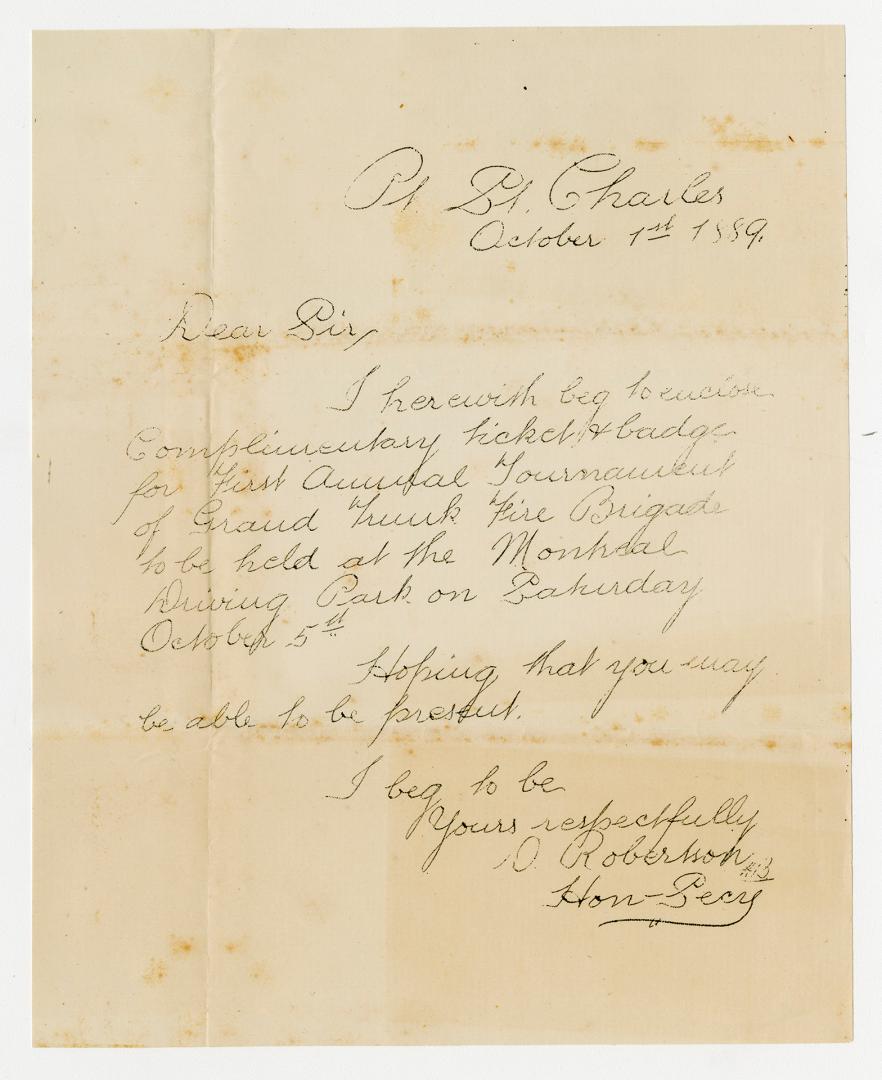 Pt. St. Charles
October 1st 1889.
Dear Sir,
I herewith beg to enclose
Complimentary ticket & badge
for First Annual Tournament
of Grand Trunk Fire Brigade
to be held at the Montreal
Driving Park on Saturday
October 5st
Hoping that you may
be able to be present.
I beg to be
Yours respectfully
Robertson
Hon-Secy